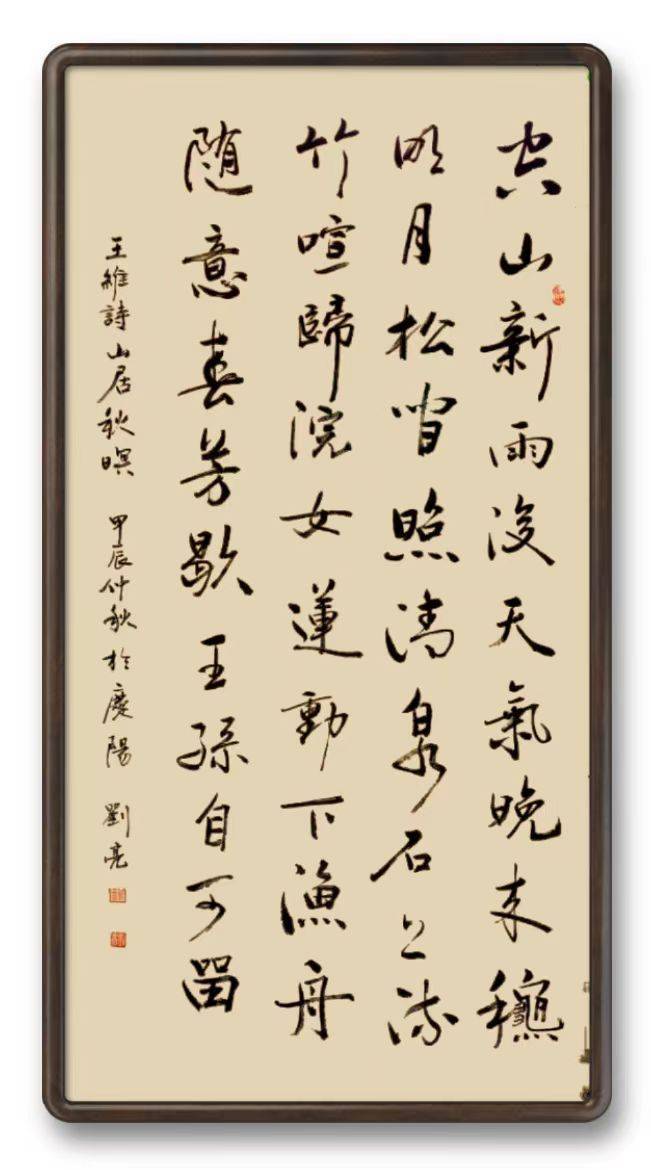 空山新雨後天氣晚来穐
明月松間照清泉石上流
竹喧歸浣女蓮動下漁舟
随意春芳歇王孫自可留
王維詩山居秋暝 甲辰仲秋於慶陽 劉亮